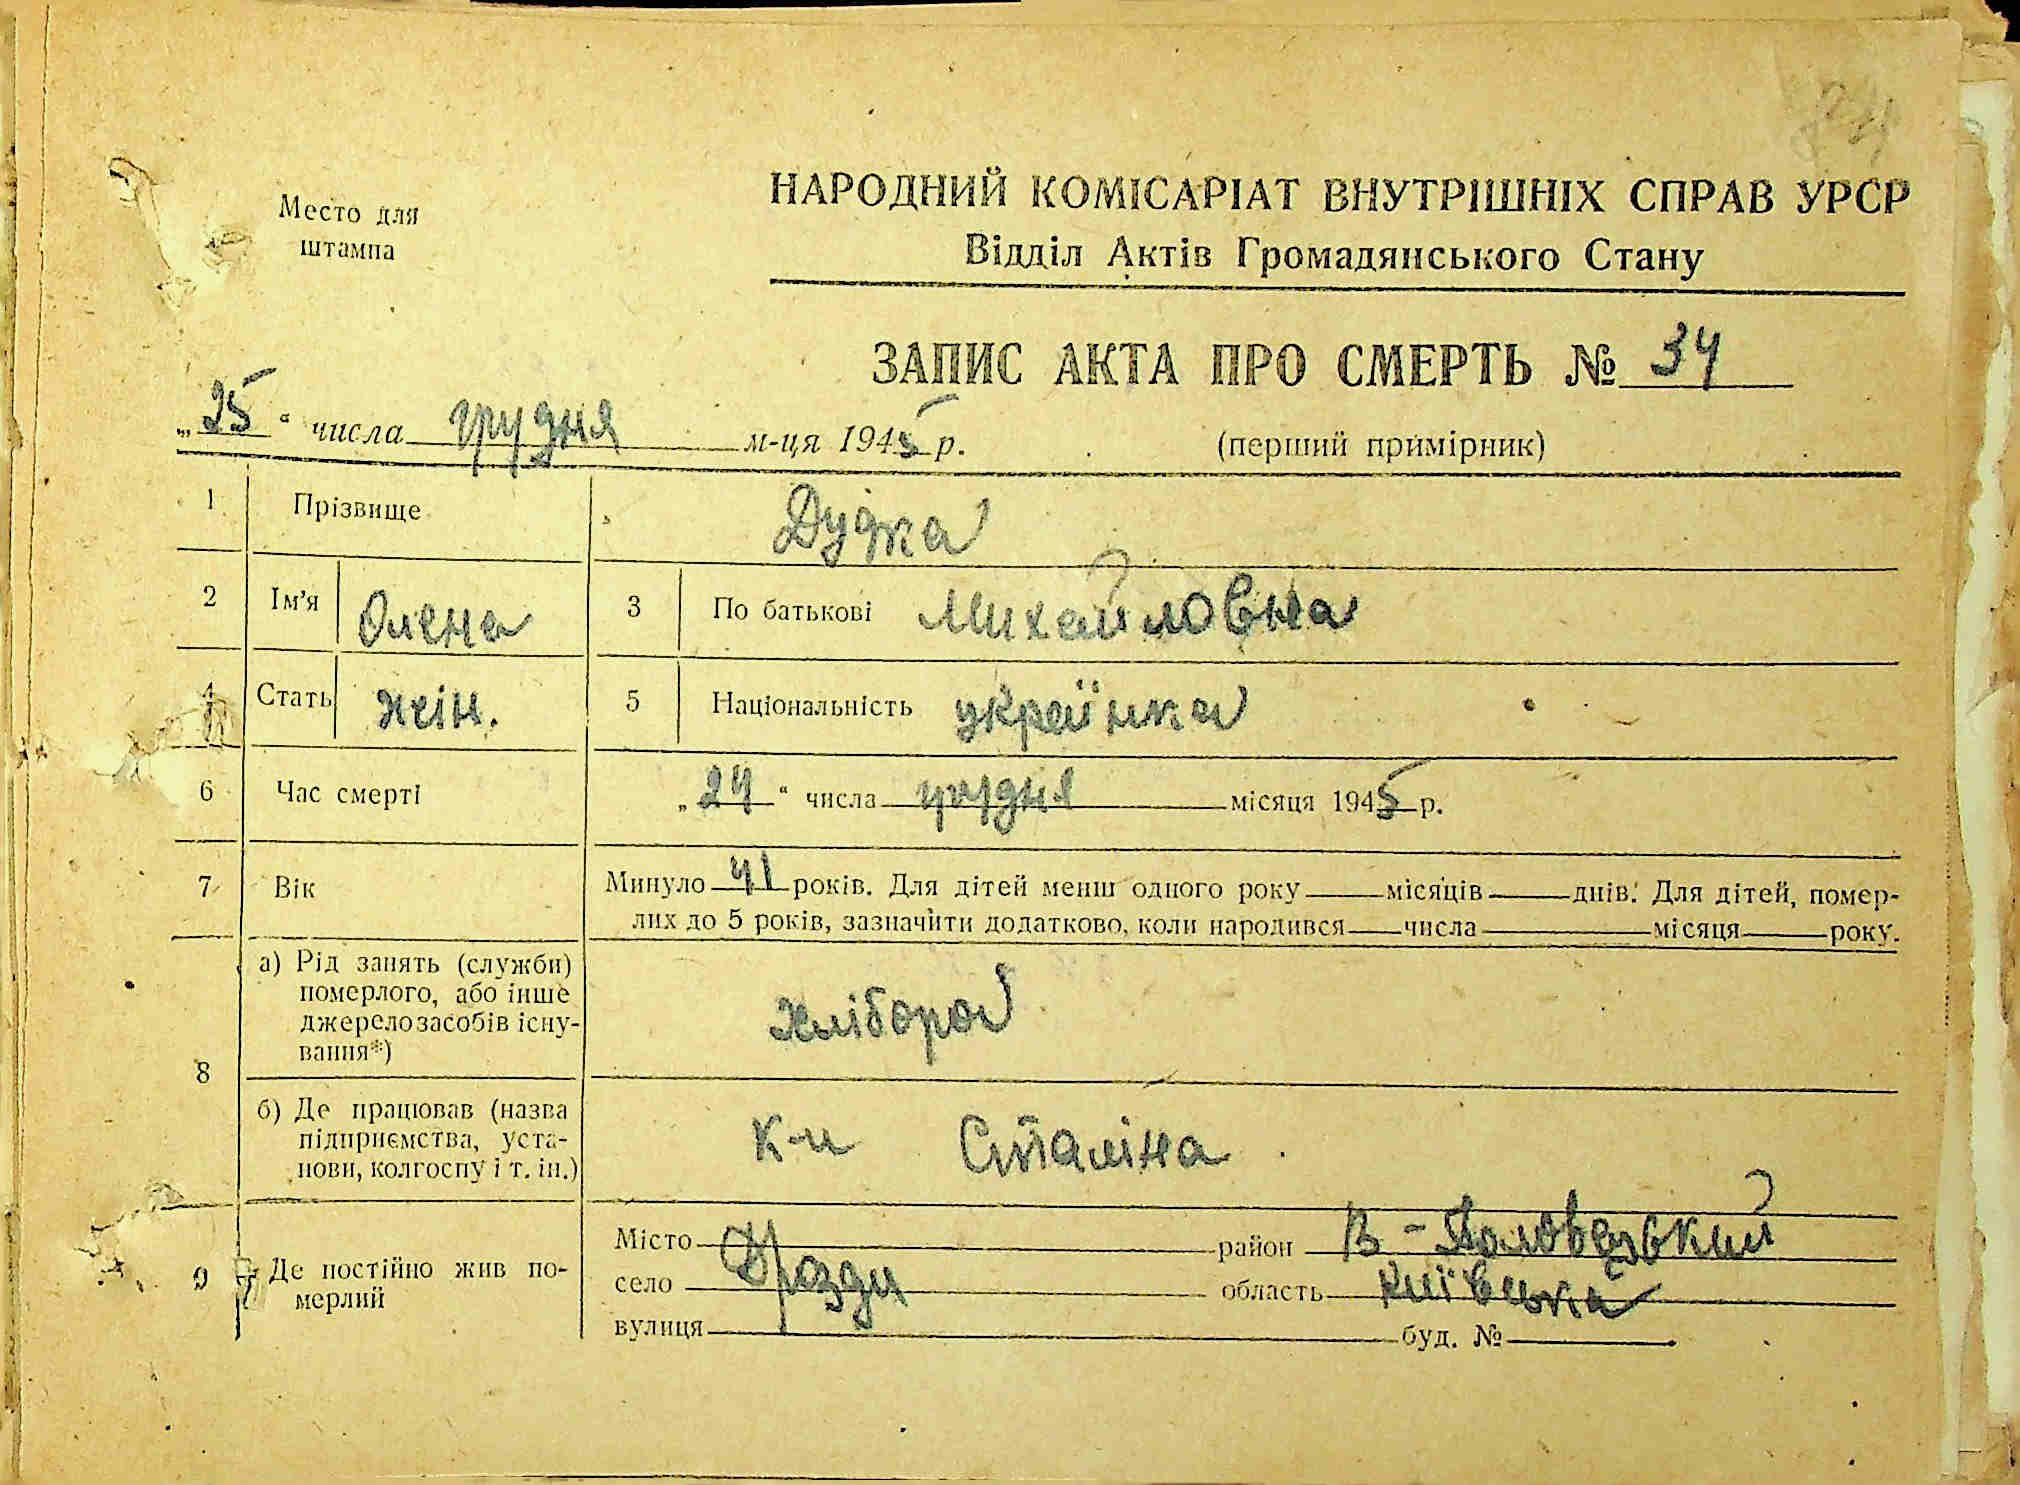 Место для
штампа
НАРОДНИЙ КОМІСАРІАТ ВНУТРІШНІХ СПРАВ УРСР
Відділ Актів Громадянського Стану
ЗАПИС АКТА ПРО СМЕРТЬ № 34
„25“ числа грудня м-ця 1945 р.
(перший примірник)
1 Прізвище Дудка
2 Ім’я Олена 3 По батькові Михайловна
4 Стать жін. 5 Національність українка
6 Час смерті „24“ числа грудня місяця 1945 р.
7 Вік Минуло 41 років. Для дітей менш одного року місяців днів. Для дітей, помер-
лих до 5 років, зазначити додатково, коли народився числа місяця року.
8 а) Рід занять (служби)
померлого, або інше
джерело засобів існу-
вання*)
хлібороб
б) Де працював (назва
підприємства, уста-
нови, колгоспу і т. ін.)
к-п Сталіна
9 Де постійно жив по-
мерлий
Місто район В-Половецький
село Дрозди область київська
вулиця буд. №